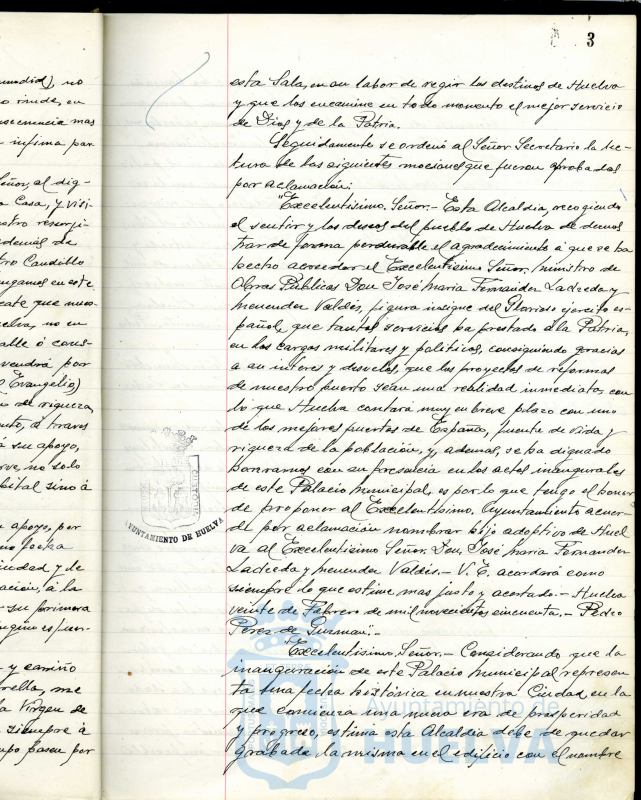 3
unadial), no
o rinde, en
nsecuencia mas
infima par
eñor, al dig-
a Casa, y visi-
stro resurgi-
demás de
tro Caudillo
ngamos en este
cate que nues-
elva, no en
alle ó cons-
vendrá por
Evangelio)
de riqueza,
nto, á traves
á su apoyo,
rve, no solo
bital sino á
apoyo, por
fecha
iudad, y de
ación, á la
su primera
- y cariño
rella, me
a Virgen de
siempre á
upo pasen por
esta Sala, en su labor de regir los destinos de Huelva
y que los encamine en todo momento el mejor servicio
de Dios y de la Patria.
Seguidamente se ordenó al Señor Secretario la lec-
tura de las siguientes mociones que fueron aprobadas
por aclamación:
"Excelentisimo. Señor.- Esta Alcaldia, recogiendo
el sentir y los deseos del pueblo de Huelva de demos
trar de forma perdurable el agradecimiento á que se ha
hecho acreedor el Excelentisimo Señor, ministro de
Obras Publicas Don José Maria Fernandez Ladreda y
menendez Valdés, figura insigne del Glorioso ejercito es-
pañol, que tantos servicios ha prestado á la Patria,
en los cargos militares y politicos, consiguiendo gracias
a su interes y desvelos, que los proyectos de reformas
de nuestro puerto sean una realidad inmediata, con
lo que Huelva contará muy en breve plazo con uno
de los mejores puertos de España, fuente de vida y
riqueza de la población, y, además, se ha dignado
honrarnos con su presencia en los actos inaugurales
de este Palacio Municipal, es por lo que tengo el honor
de proponer al Excelentisimo. Ayuntamiento acuer-
de por aclamación nombrar hijo adoptivo de Huel
va al Excelentisimo Señor. Don. José Maria Fernandez
Ladreda y menendez Valdés.- V. E. acordará como
siempre lo que estime mas justo y acertado.- Huelva
veinte de Febrero de mil novecientos cincuenta.- Pedro
Pérez de Guzman".-
"Excelentisimo. Señor.- Considerando que la
inauguración de este Palacio municipal represen
ta una fecha histórica en nuestra Ciudad en la
que comienza una nueva era de prosperidad
y progreso, estima esta Alcaldia debe de quedar
grabada la misma en el edificio con el nombre
AYUNTAMIENTO DE HUELVA
Ayuntamiento de
HUELVA